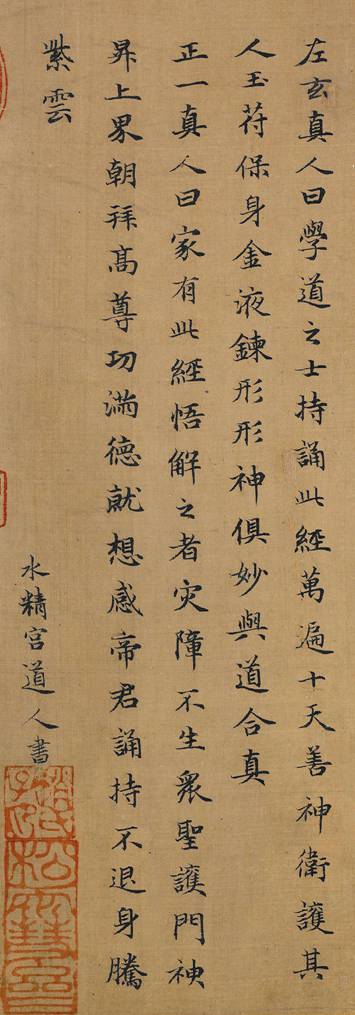 左玄真人曰學道之士持誦此經萬遍十天善神衛護其
人玉苻保身金液鍊形形神俱妙與道合真
正一真人曰家有此經悟解之者灾障不生眾聖護門神
昇上界朝拜髙尊功滿德就想感帝君誦持不退身騰
紫雲
水精宮道人書